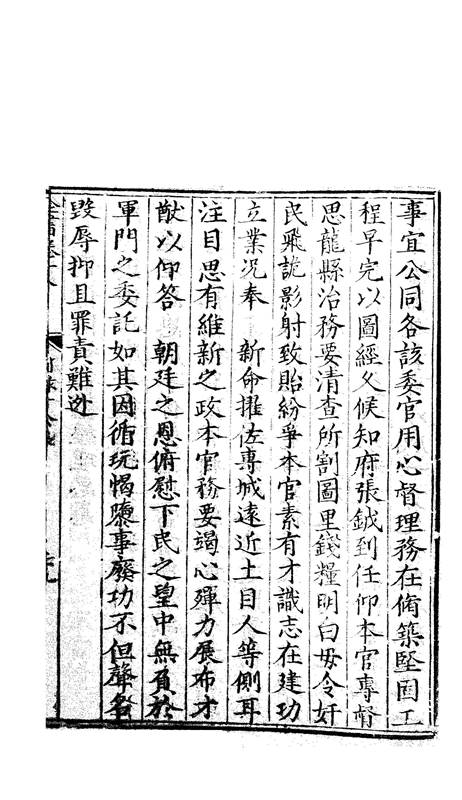 事宜公同各該委官用心督理務在脩築堅固工
程早完以圖經久候知府張鉞到任仰本官專督
思龍縣治務要清查所割圖里錢糧明白毋令奸
民飛詭影射致貽紛爭本官素有才識志在建功
立業况奉　新命擢佐專城遠近土目人等側耳
注目思有維新之政本官務要竭心殫力展布才
猷以仰答　朝廷之恩俯慰下民之望中無負於
軍門之委託如其因循玩愒隳事廢功不但聲名
毀辱抑且罪責難逃